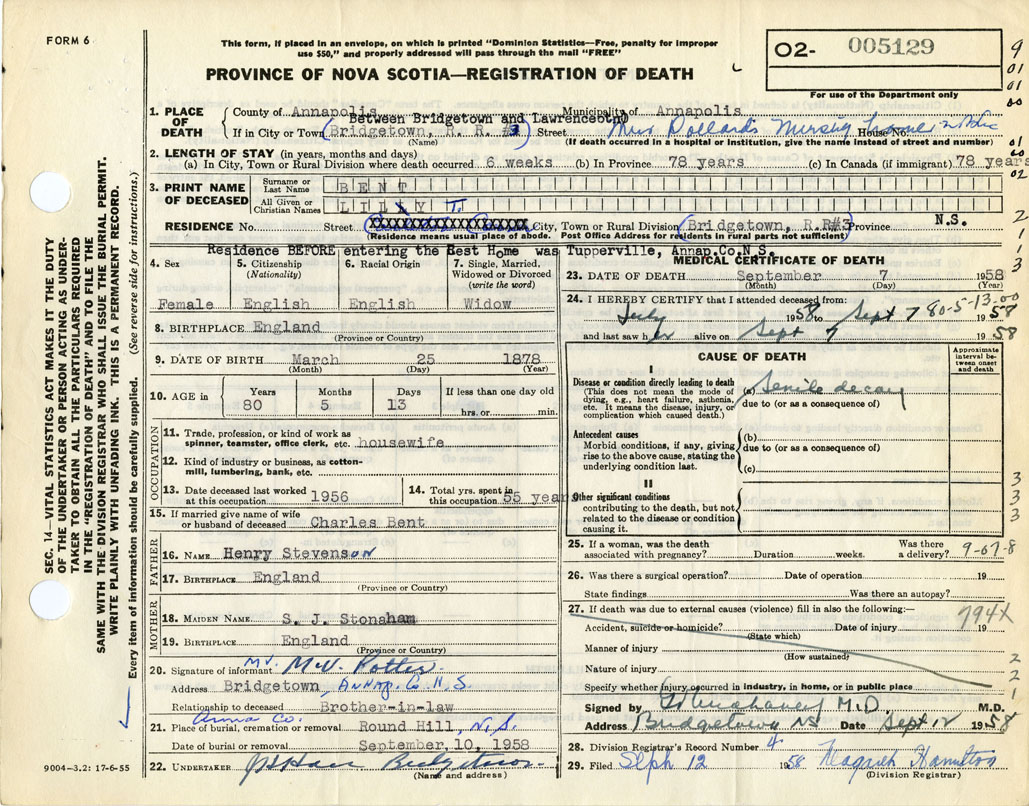 FORM 6
This form, if placed in an envelope, on which is printed "Dominion Statistics—Free, penalty for improper
use $50," and properly addressed will pass through the mail "FREE"
PROVINCE OF NOVA SCOTIA—REGISTRATION OF DEATH
02- 005129
For use of the Department only
9
01
01
00
01
00
02
2
1
3
3
3
3
2
2
1
SEC. 14—VITAL STATISTICS ACT MAKES IT THE DUTY
OF THE UNDERTAKER OR PERSON ACTING AS UNDER-
TAKER TO OBTAIN ALL THE PARTICULARS REQUIRED
IN THE "REGISTRATION OF DEATH" AND TO FILE THE
SAME WITH THE DIVISION REGISTRAR WHO SHALL ISSUE THE BURIAL PERMIT.
WRITE PLAINLY WITH UNFADING INK. THIS IS A PERMANENT RECORD.
Every item of information should be carefully supplied. (See reverse side for instructions.)
1. PLACE OF DEATH
County of Annapolis Municipality of Annapolis
Between Bridgetown and Lawrencetown
If in City or Town Bridgetown, R. R. #3 Street Mrs Pollards Nursing Home House No.
(Name) (If death occurred in a hospital or Institution, give the name instead of street and number)
2. LENGTH OF STAY (in years, months and days)
(a) In City, Town or Rural Division where death occurred 6 weeks (b) In Province 78 years (c) In Canada (if immigrant) 78 years
3. PRINT NAME OF DECEASED
Surname or Last Name BENT
All Given or Christian Names LILLY T.
RESIDENCE No. Street City, Town or Rural Division Bridgetown, R.R#3 Province N.S.
(Residence means usual place of abode. Post Office Address for residents in rural parts not sufficient)
Residence BEFORE entering the Rest Home was Tupperville, Annap.Co.N.S.
4. Sex
Female
5. Citizenship
(Nationality)
English
6. Racial Origin
English
7. Single, Married, Widowed or Divorced
(write the word)
Widow
8. BIRTHPLACE England
(Province or Country)
9. DATE OF BIRTH March 25 1878
(Month) (Day) (Year)
10. AGE in
Years Months Days If less than one day old
80 5 13 hrs. or min.
OCCUPATION
11. Trade, profession, or kind of work as
spinner, teamster, office clerk, etc. housewife
12. Kind of industry or business, as cotton-
mill, lumbering, bank, etc.
13. Date deceased last worked
at this occupation 1956
14. Total yrs. spent in
this occupation 55 years
15. If married give name of wife
or husband of deceased Charles Bent
FATHER
16. NAME Henry Stevenson
17. BIRTHPLACE England
(Province or Country)
MOTHER
18. MAIDEN NAME S. J. Stonaham
19. BIRTHPLACE England
(Province or Country)
20. Signature of informant Mr. McV. Potter.
Address Bridgetown, Annap. Co. N. S.
Relationship to deceased Brother-in-law
Anna Co.
21. Place of burial, cremation or removal Round Hill, N.S.
Date of burial or removal September, 10, 1958
22. UNDERTAKER Bridgetown
(Name and address)
9004—3.2: 17-6-55
MEDICAL CERTIFICATE OF DEATH
23. DATE OF DEATH September 7 1958
(Month) (Day) (Year)
24. I HEREBY CERTIFY that I attended deceased from:
80-5-13.00
July 1958 to Sept 7 1958
and last saw her alive on Sept 7 1958
CAUSE OF DEATH
Approximate interval between onset and death
I
Disease or condition directly leading to death
(This does not mean the mode of
dying, e.g., heart failure, asthenia,
etc. It means the disease, injury, or
complication which caused death.)
(a) Senile decay
due to (or as a consequence of)
Antecedent causes
Morbid conditions, if any, giving
rise to the above cause, stating the
underlying condition last.
(b)
due to (or as a consequence of)
(c)
II
Other significant conditions
contributing to the death, but not
related to the disease or condition
causing it.
25. If a woman, was the death
associated with pregnancy? Duration weeks. Was there a delivery?
9-07-8
26. Was there a surgical operation? Date of operation 19
State findings Was there an autopsy?
27. If death was due to external causes (violence) fill in also the following:—
794X
Accident, suicide or homicide? Date of injury 19
(State which)
Manner of injury
(How sustained)
Nature of injury
Specify whether injury occurred in industry, in home, or in public place
Signed by M.D. M.D.
Address Bridgetown NS Date Sept 12 1958
28. Division Registrar's Record Number 4
29. Filed Sept 12 1958 Hamilton
(Division Registrar)